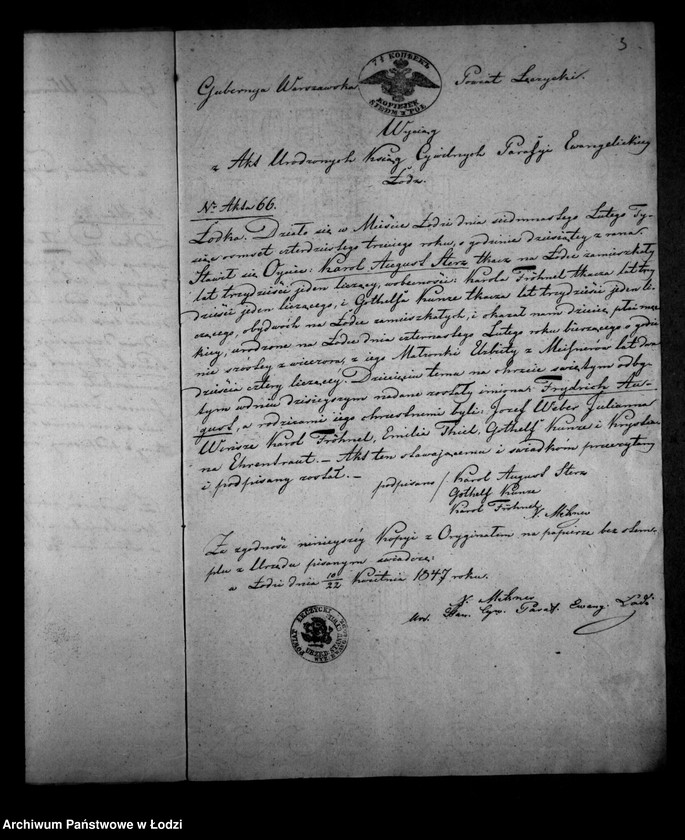 3
7½ КОПѢЕКЪ
KOPIEJEK
Gubernya Warszawska Powiat Łęczycki.
Wyciąg
z Akt Urodzonych Ksiąg Cywilnych Parafyi Ewangelickiey
Łódz.
Nr. Akta 66.
Łódka. Działo się w Mieście Łodzi dnia siedmnastego Lutego Ty-
siąc osmset czterdziestego trzeciego roku, o godzinie dziesiątey z rana.
Stawił się Oyciec: Karol August Sterz tkacz na Łodce zamieszkały
lat trzydzieści jeden liczący, w obecności: Karola Fröhnel tkacza lat trzy
dzieści jeden liczącego, i Gothelfa Kunze tkacza lat trzydzieści jeden li-
czącego, obydwóch na Łodce zamieszkałych, i okazał nam dziecię, płci męz-
kiey, urodzone na Łodce dnia czternastego Lutego roku bieżącego o godzi-
nie szostey z wieczora, z iego Małżonki Elżbiety z Meisnerów lat dwa
dzieścia cztery liczącéy. Dziecięciu temu na chrzcie świętym odby-
tym w dniu dzisieyszym nadane zostały imiona: Frydrich Au-
gust, a rodzicami iego chrzestnemi byli: Jozef Weber, Julianna
Karol Fröhnel, Emilia Thiel, Gothelf Kunze i Krystia-
na Ehrentraut. – Akt ten stawaiącemu i swiadkom przeczytany
i podpisany został. –
podpisano / Karol August Sterz
Gothelf Kunze
Karol Fröhnel
Za zgodność ninieyszéy Kopyi z Oryginałem na papierze bez stem-
plu z Urzędu pisanym świadczę:
w Łodzi dnia 10/22 Kwietnia 1847 roku.
Urz. Stan. Cyw. Paraf. Ewang. Łodz.
Archiwum Państwowe w Łodzi